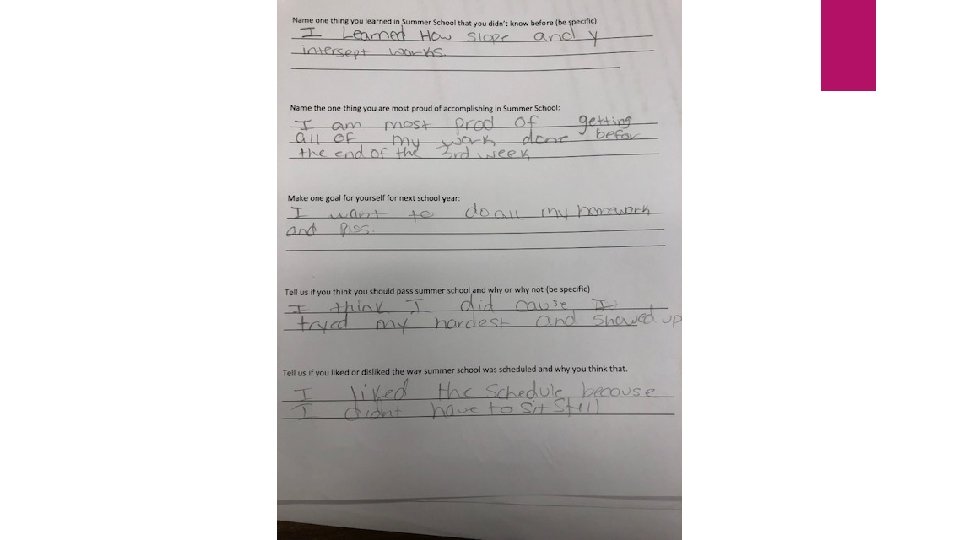 Name one thing you learned in Summer School that you didn't know before (be specific)
I Learned How slope and y
intersept works.
Name the one thing you are most proud of accomplishing in Summer School:
I am most prod of getting
all of my work done befor
the end of the 3rd week
Make one goal for yourself for next school year:
I want to do all my homework
and pass.
Tell us if you think you should pass summer school and why or why not (be specific)
I think I did cause I
tryed my hardest and showed up
Tell us if you liked or disliked the way summer school was scheduled and why you think that.
I liked the schedule becouse
I didnt have to sit still